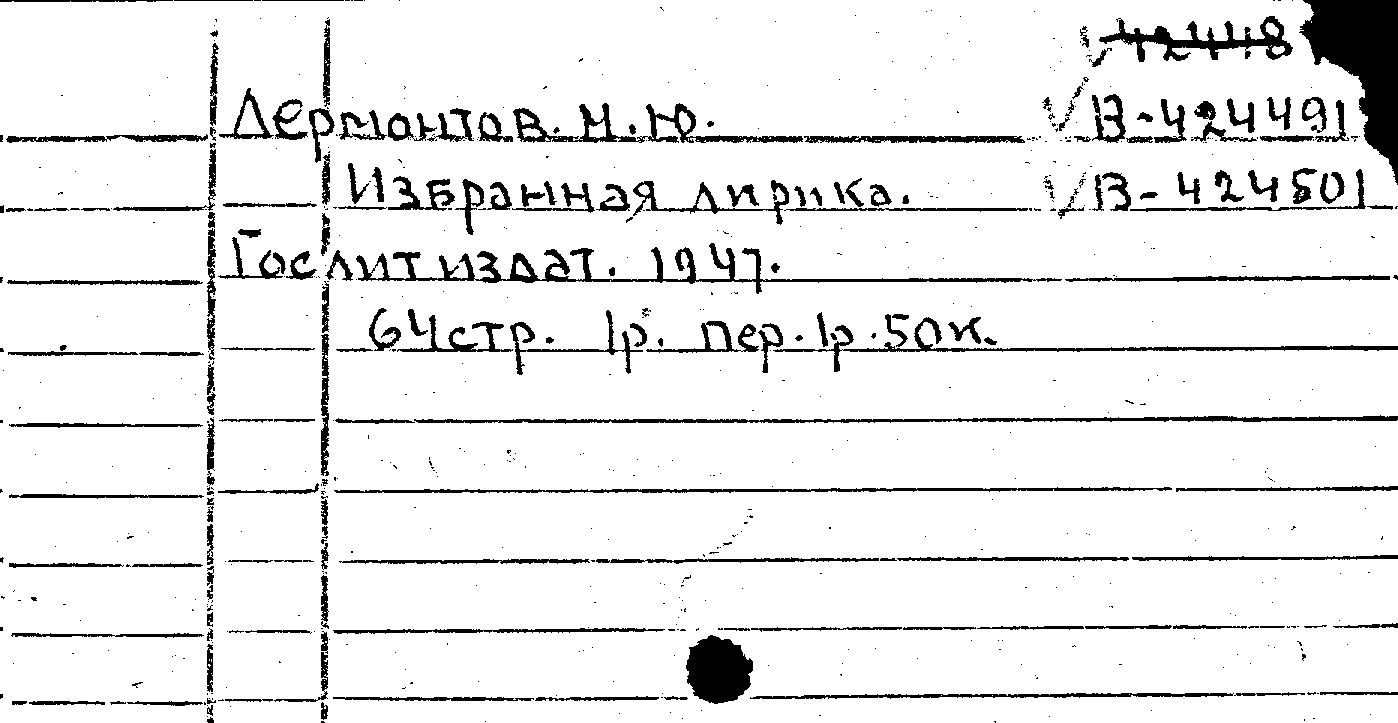 42448
Лермонтов. М.Ю. В-424491
Избранная лирика. В-424501
Гослитиздат. 1947.
64стр. 1р. пер. 1р.50к.